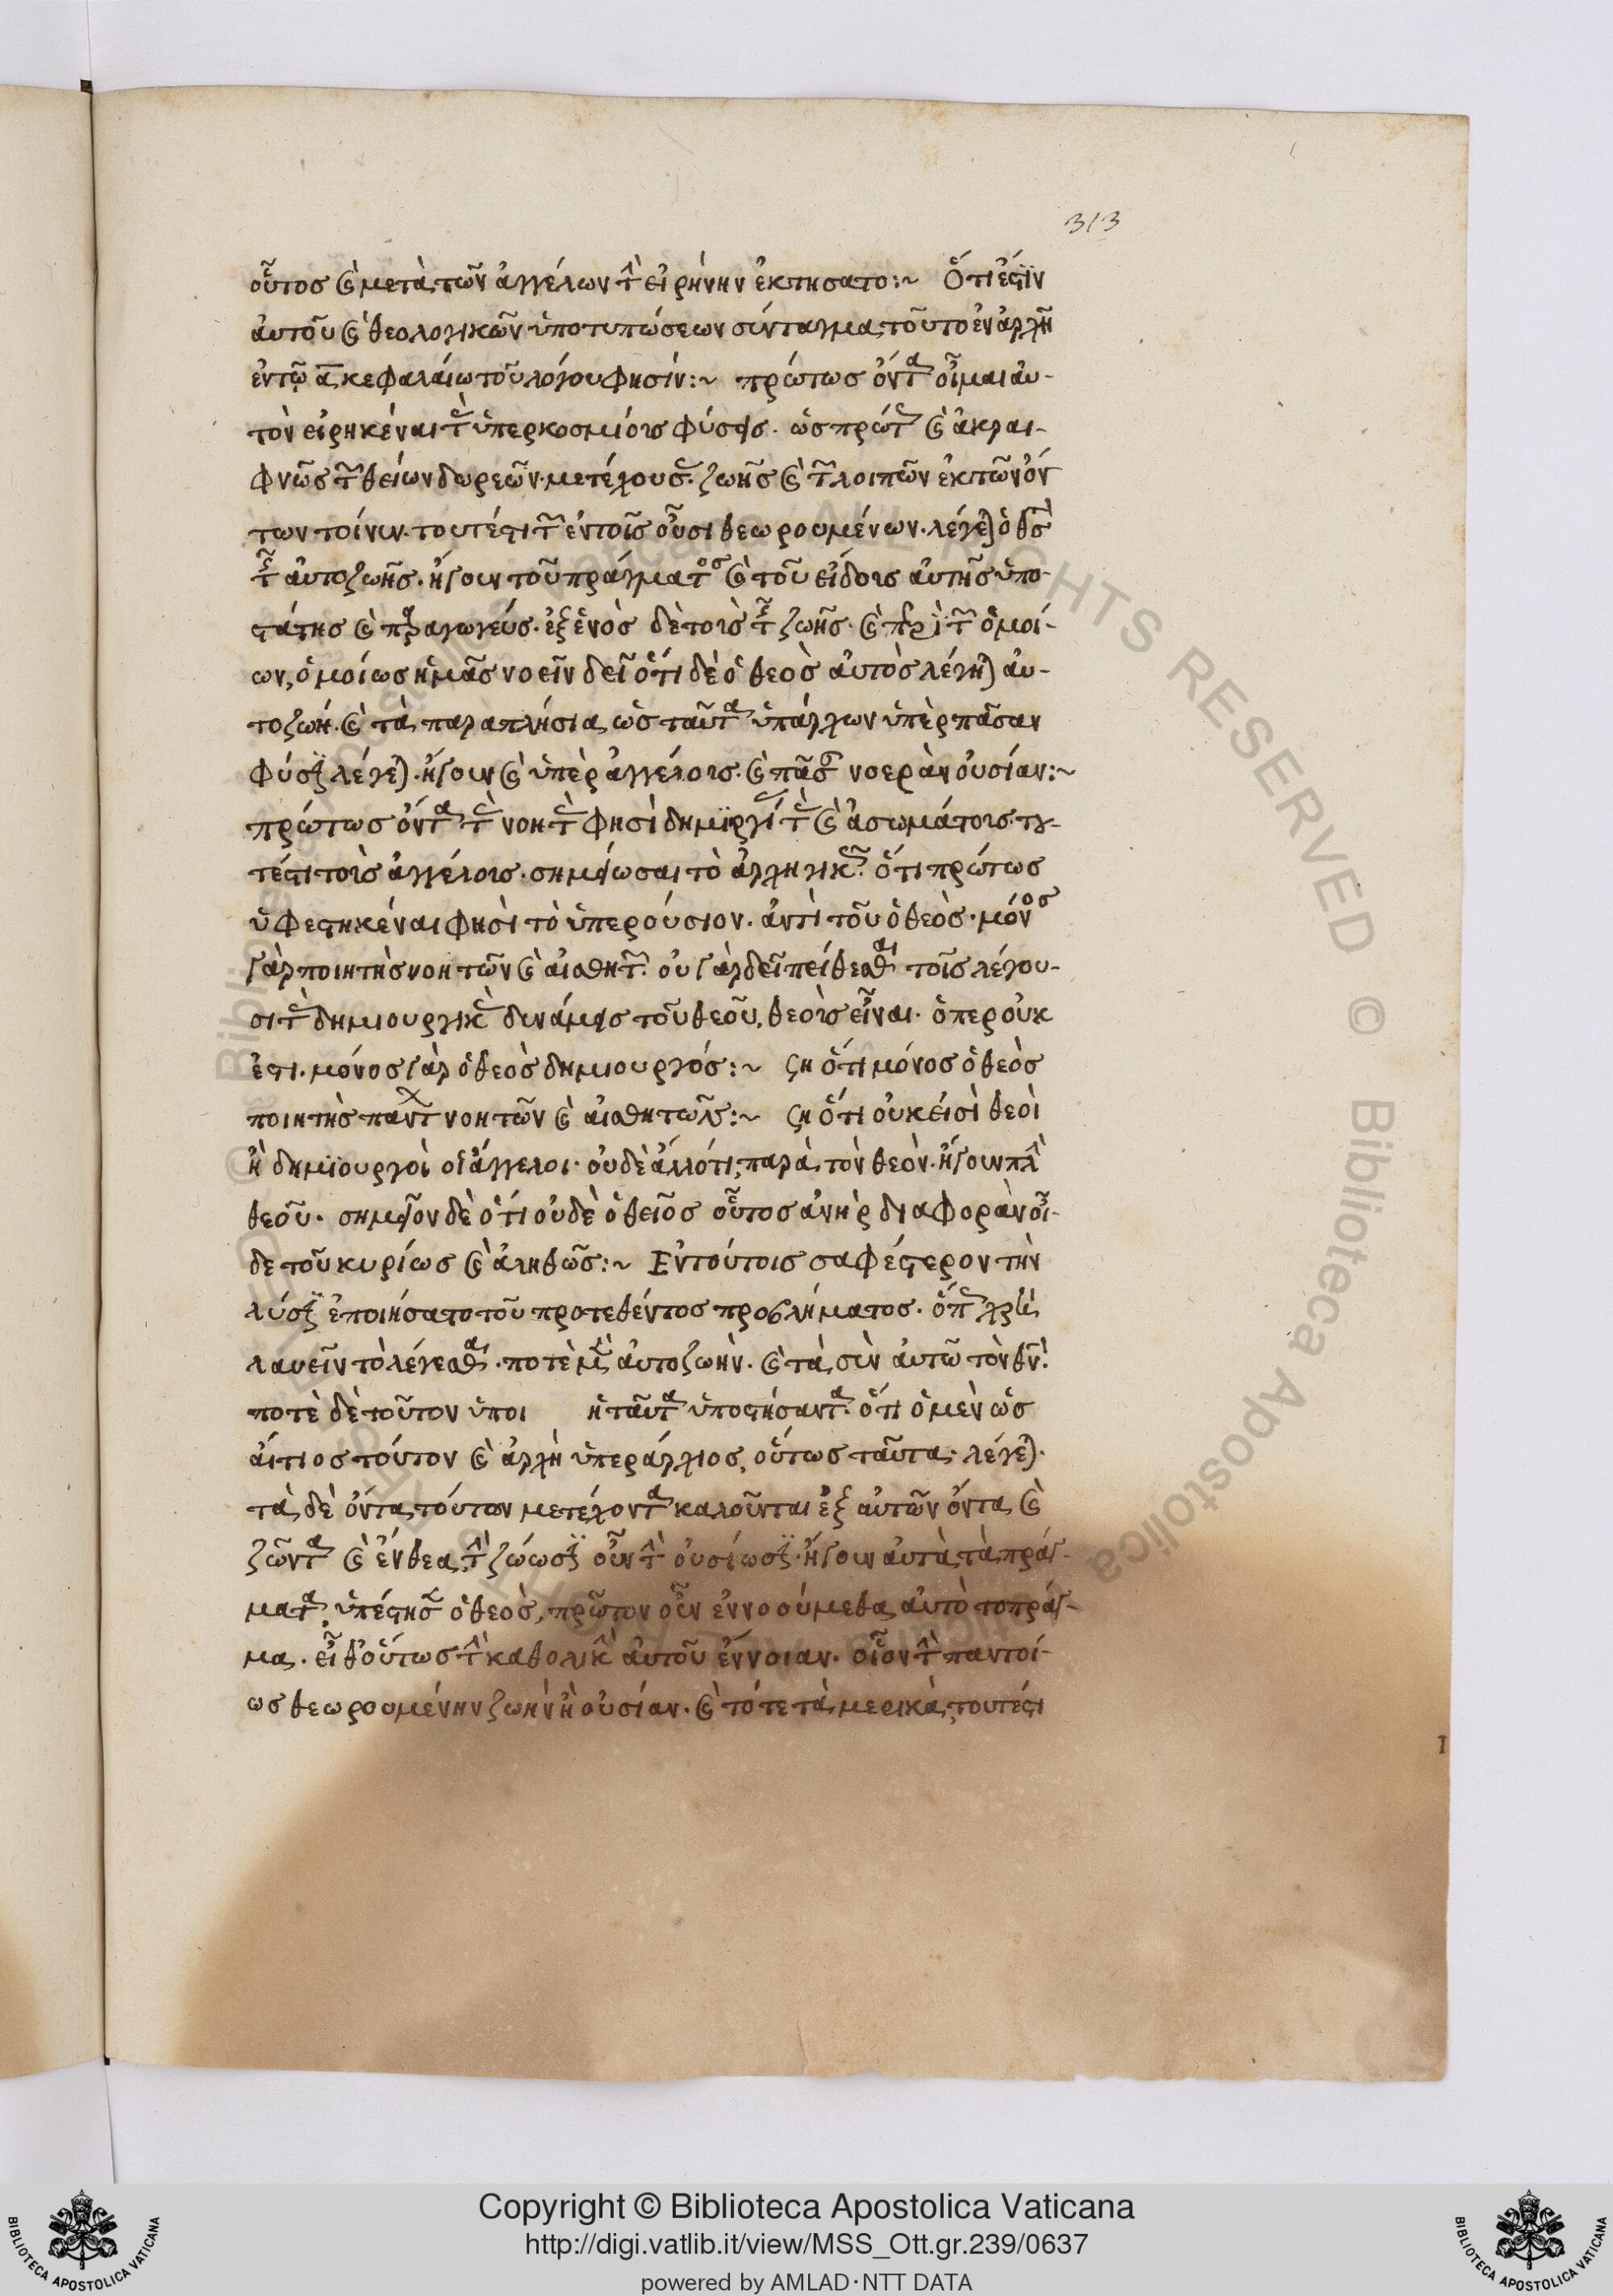 313
οὗτος καὶ μετὰ τῶν ἀγγέλων τὴν εἰρήνην ἐκτήσατο:~ Ὅτι ἐστὶν
αὐτοῦ καὶ θεολογικῶν ὑποτυπώσεων σύνταγμα, τοῦτο ἐν ἀρχῇ
ἐν τῷ α κεφαλαίω τοῦ λόγου φησίν:~ πρώτως ὄντα οἶμαι αὐ-
τὸν εἰρηκέναι τὰς ὑπερκοσμίους φύσεις. ὡς πρώτως καὶ ἀκραι-
φνῶς τῶν θείων δωρεῶν μετέχουσας. ζωῆς καὶ τῶν λοιπῶν ἐκ τῶν ὄν
των τοίνυν. τουτέστι τῶν ἐν τοῖς οὖσι θεωρουμένων. λέγεται ὁ θς
τῆς αὐτοζωῆς. ἤγουν τοῦ πράγματος καὶ τοῦ εἴδους αὐτῆς ὑπο-
στάτης καὶ παραγωγεύς. ἐξ ἑνὸς δὲ τοὺς τῆς ζωῆς. καὶ περὶ τῶν ὁμοί-
ων, ὁμοίως ἡμᾶς νοεῖν δεῖ ὅτι δὲ ὁ θεὸς αὐτὸς λέγηται αὐ-
τοζωή. καὶ τὰ παραπλήσια, ὡς ταῦτα ὑπάρχων ὑπὲρ πᾶσαν
φύσιν λέγεται. ἤγουν καὶ ὑπὲρ ἀγγέλους. καὶ πᾶσαν νοερὰν οὐσίαν:~
πρώτως ὄντα τοὺς νοητοὺς φησὶ δημιουργίας τοὺς καὶ ἀσωμάτους του-
τέστι τοὺς ἀγγέλους. σημείωσαι τὸ ἀρχηγικῶς. ὅτι πρώτως
ὑφεστηκέναι φησὶ τὸ ὑπερούσιον. ἀντὶ τοῦ ὁ θεὸς. μόνος
γὰρ ποιητὴς νοητῶν καὶ αἰσθητῶν. οὐ γὰρ δεῖ πείθεσθαι τοῖς λέγου-
σι τὰς δημιουργικὰς δυνάμεις τοῦ θεοῦ, θεοὺς εἶναι. ὅπερ οὐκ
ἔστι. μόνος γὰρ ὁ θεὸς δημιουργός:~ ση ὅτι μόνος ὁ θεὸς
ποιητὴς πάντων νοητῶν καὶ αἰσθητῶν:~ ση ὅτι οὐκ εἰσὶ θεοὶ
ἢ δημιουργοὶ οἱ ἄγγελοι. οὐδὲ ἄλλό τι, παρὰ τὸν θεόν. ἤγουν πλὴν
θεοῦ. σημεῖον δὲ ὅτι οὐδὲ ὁ θεῖος οὗτος ἀνὴρ διαφορὰν οἶ-
δε τοῦ κυρίως καὶ ἀληθῶς:~ Ἐν τούτοις σαφέστερον τὴν
λύσιν ἐποιήσατο τοῦ προτεθέντος προβλήματος. ὅπως χρὴ
λαβεῖν τὸ λέγεσθαι. ποτὲ μὲν αὐτοζωὴν. καὶ τὰ σὺν αὐτῶ τὸν θν.
ποτὲ δὲ τοῦτον ὑποι   ἡ ταῦτα ὑποστήσαντα. ὅτι ὁ μὲν ὡς
αἴτιος τούτον καὶ ἀρχὴ ὑπεράρχιος, οὕτως ταῦτα λέγεται.
τὰ δὲ ὄντα τούτων μετέχοντα καλοῦνται ἐξ αὐτῶν ὄντα, καὶ
ζῶντα καὶ ἔνθεα, τὴν ζώωσιν οὖν τὴν οὐσίωσιν. ἤγουν αὐτὰ τὰ πράγ-
ματα ὑπέστησεν ὁ θεὸς, πρῶτον οὖν ἐννοούμεθα αὐτὸ τὸ πράγ-
μα. εἶθ' οὕτως τὴν καθολικὴν αὐτοῦ ἔννοιαν. οἷον τὴν παντοί-
ως θεωρουμένην ζωὴν ἢ οὐσίαν. καὶ τότε τὰ μερικὰ, τουτέστι
I
© Biblioteca Apostolica Vaticana ALL RIGHTS RESERVED
Copyright © Biblioteca Apostolica Vaticana
http://digi.vatlib.it/view/MSS_Ott.gr.239/0637
powered by AMLAD·NTT DATA
BIBLIOTECA APOSTOLICA VATICANA
BIBLIOTECA APOSTOLICA VATICANA